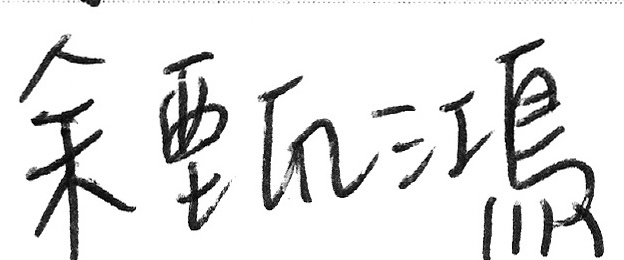 余甄鴻